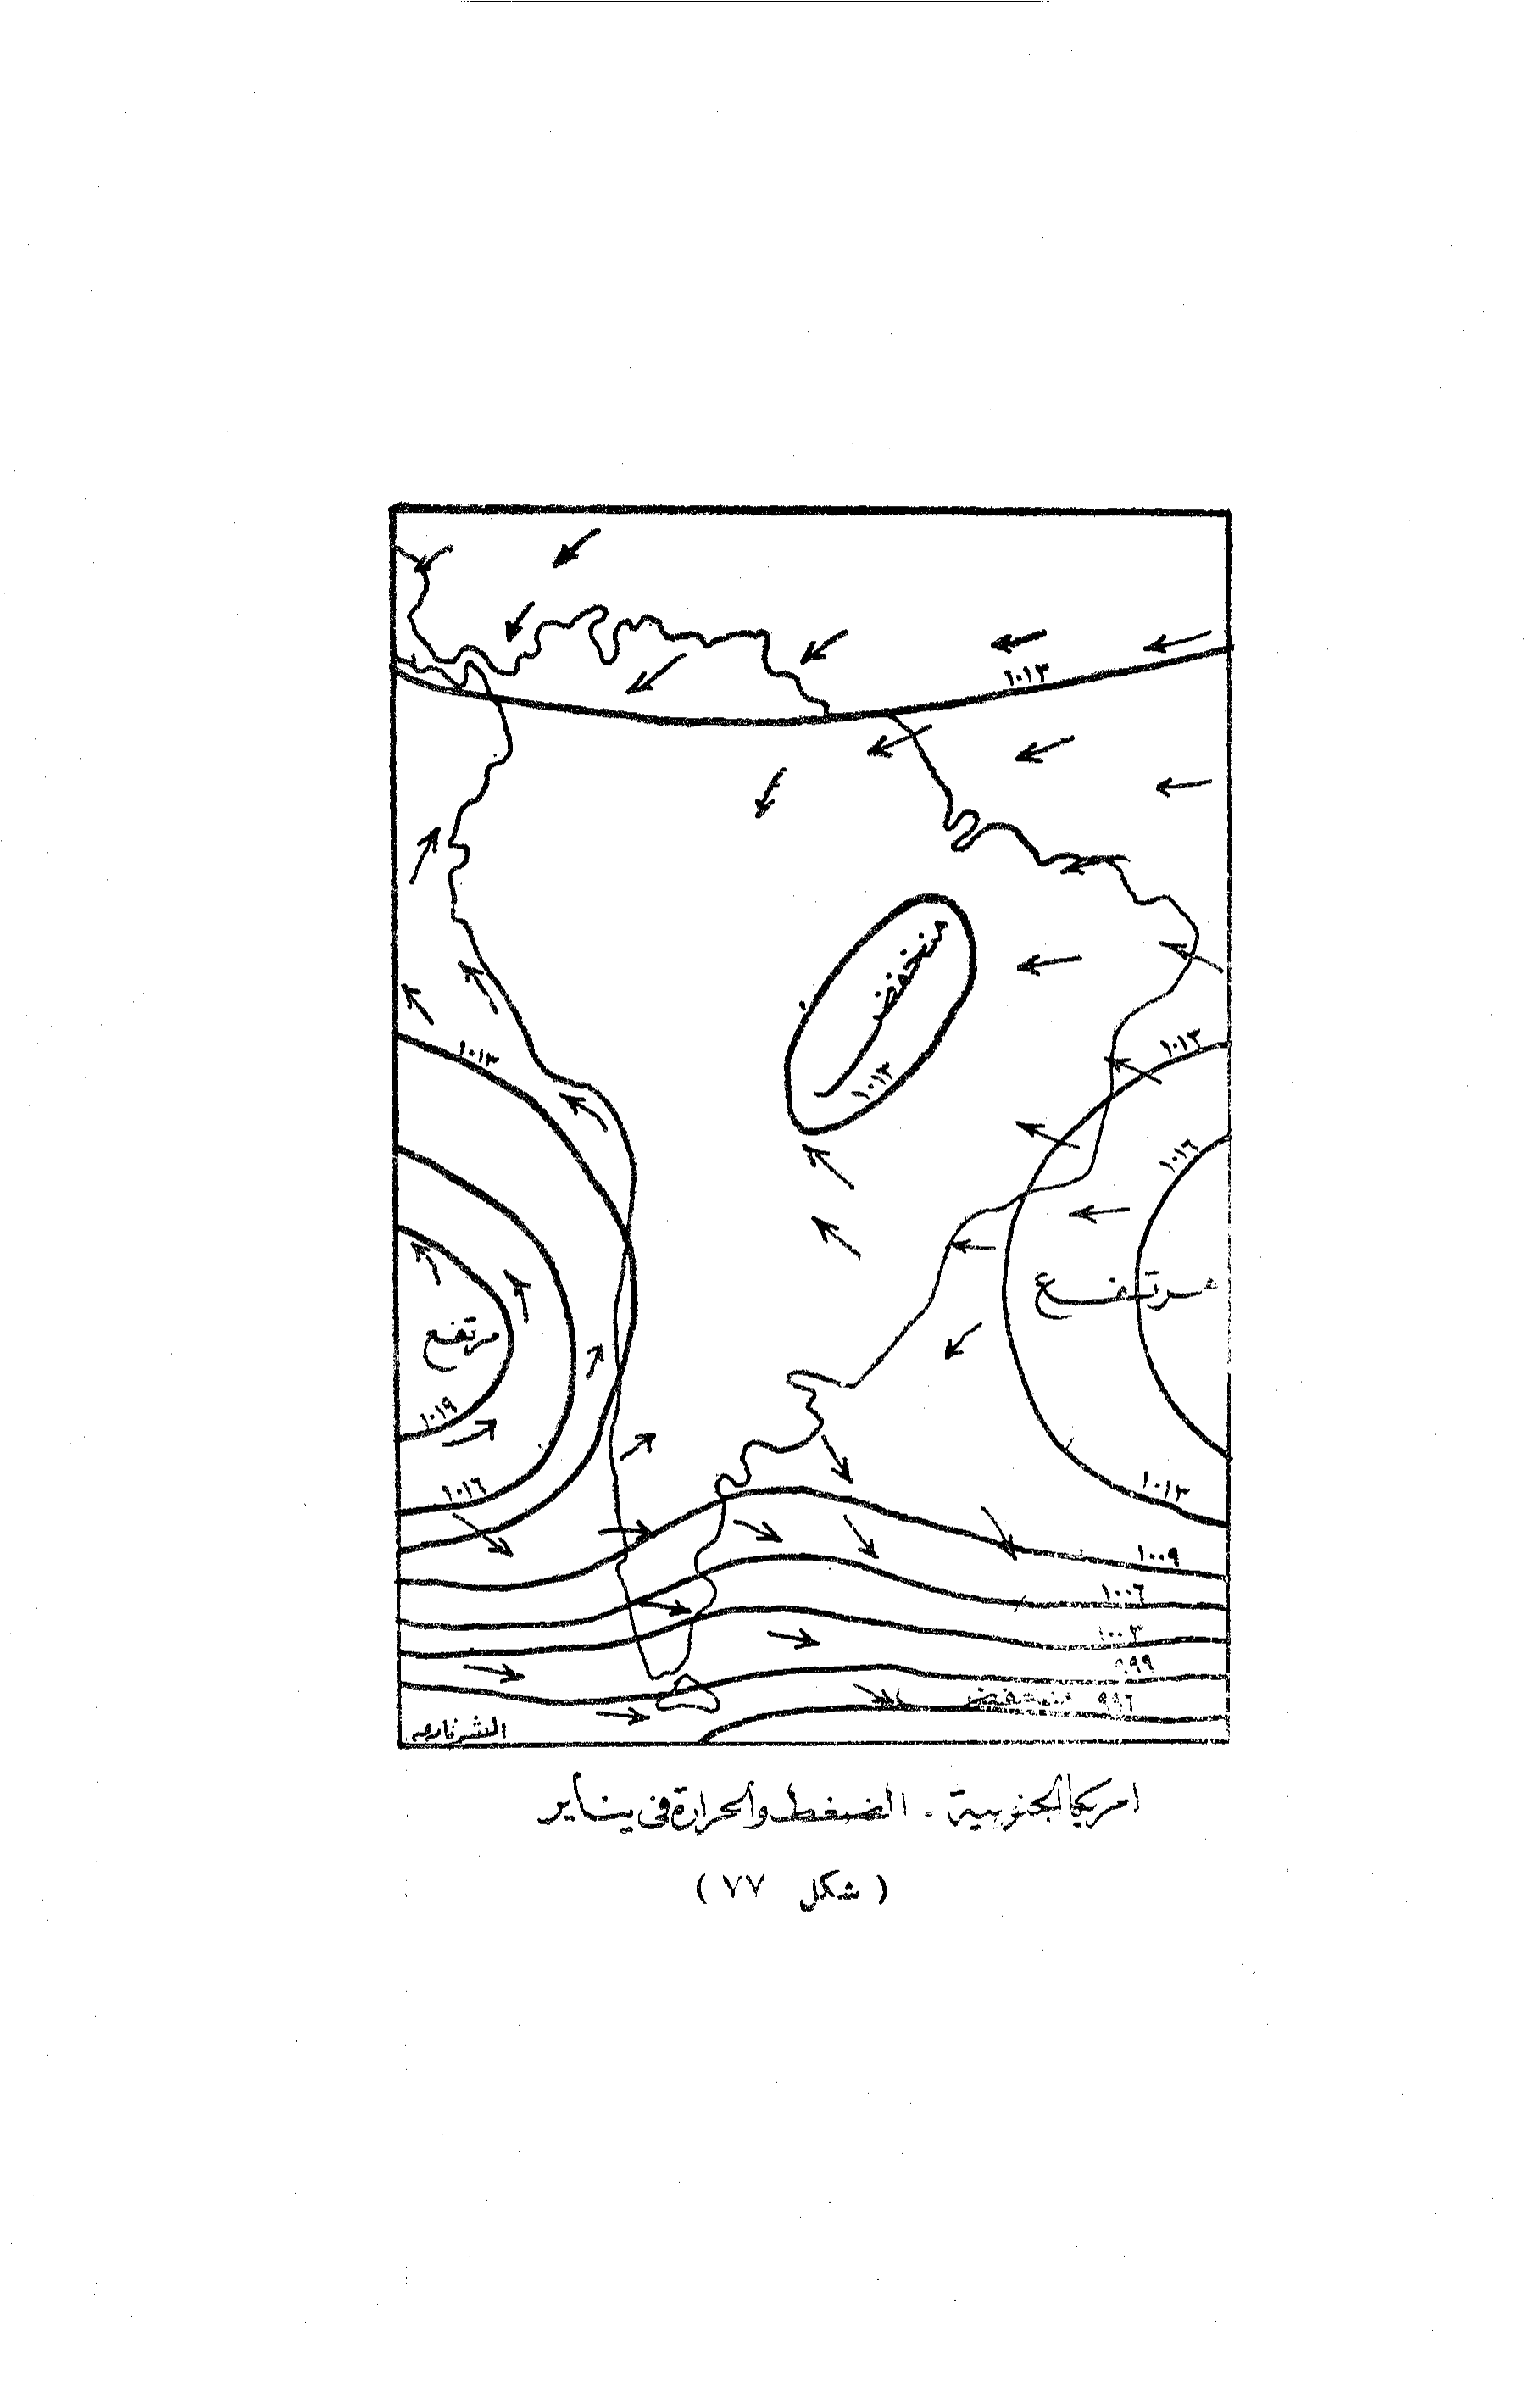 ١٠١٣
منخفض
١٠١٣
١٠١٣
١٠١٣
١٠١٦
مرتفع
مرتفع
١٠١٩
١٠١٦
١٠١٣
١٠٠٩
١٠٠٦
١٠٠٣
٩٩٩
منخفض ٩٩٦
امريكا الجنوبية - الضغط والحرارة فى يناير
( شكل ٧٧ )